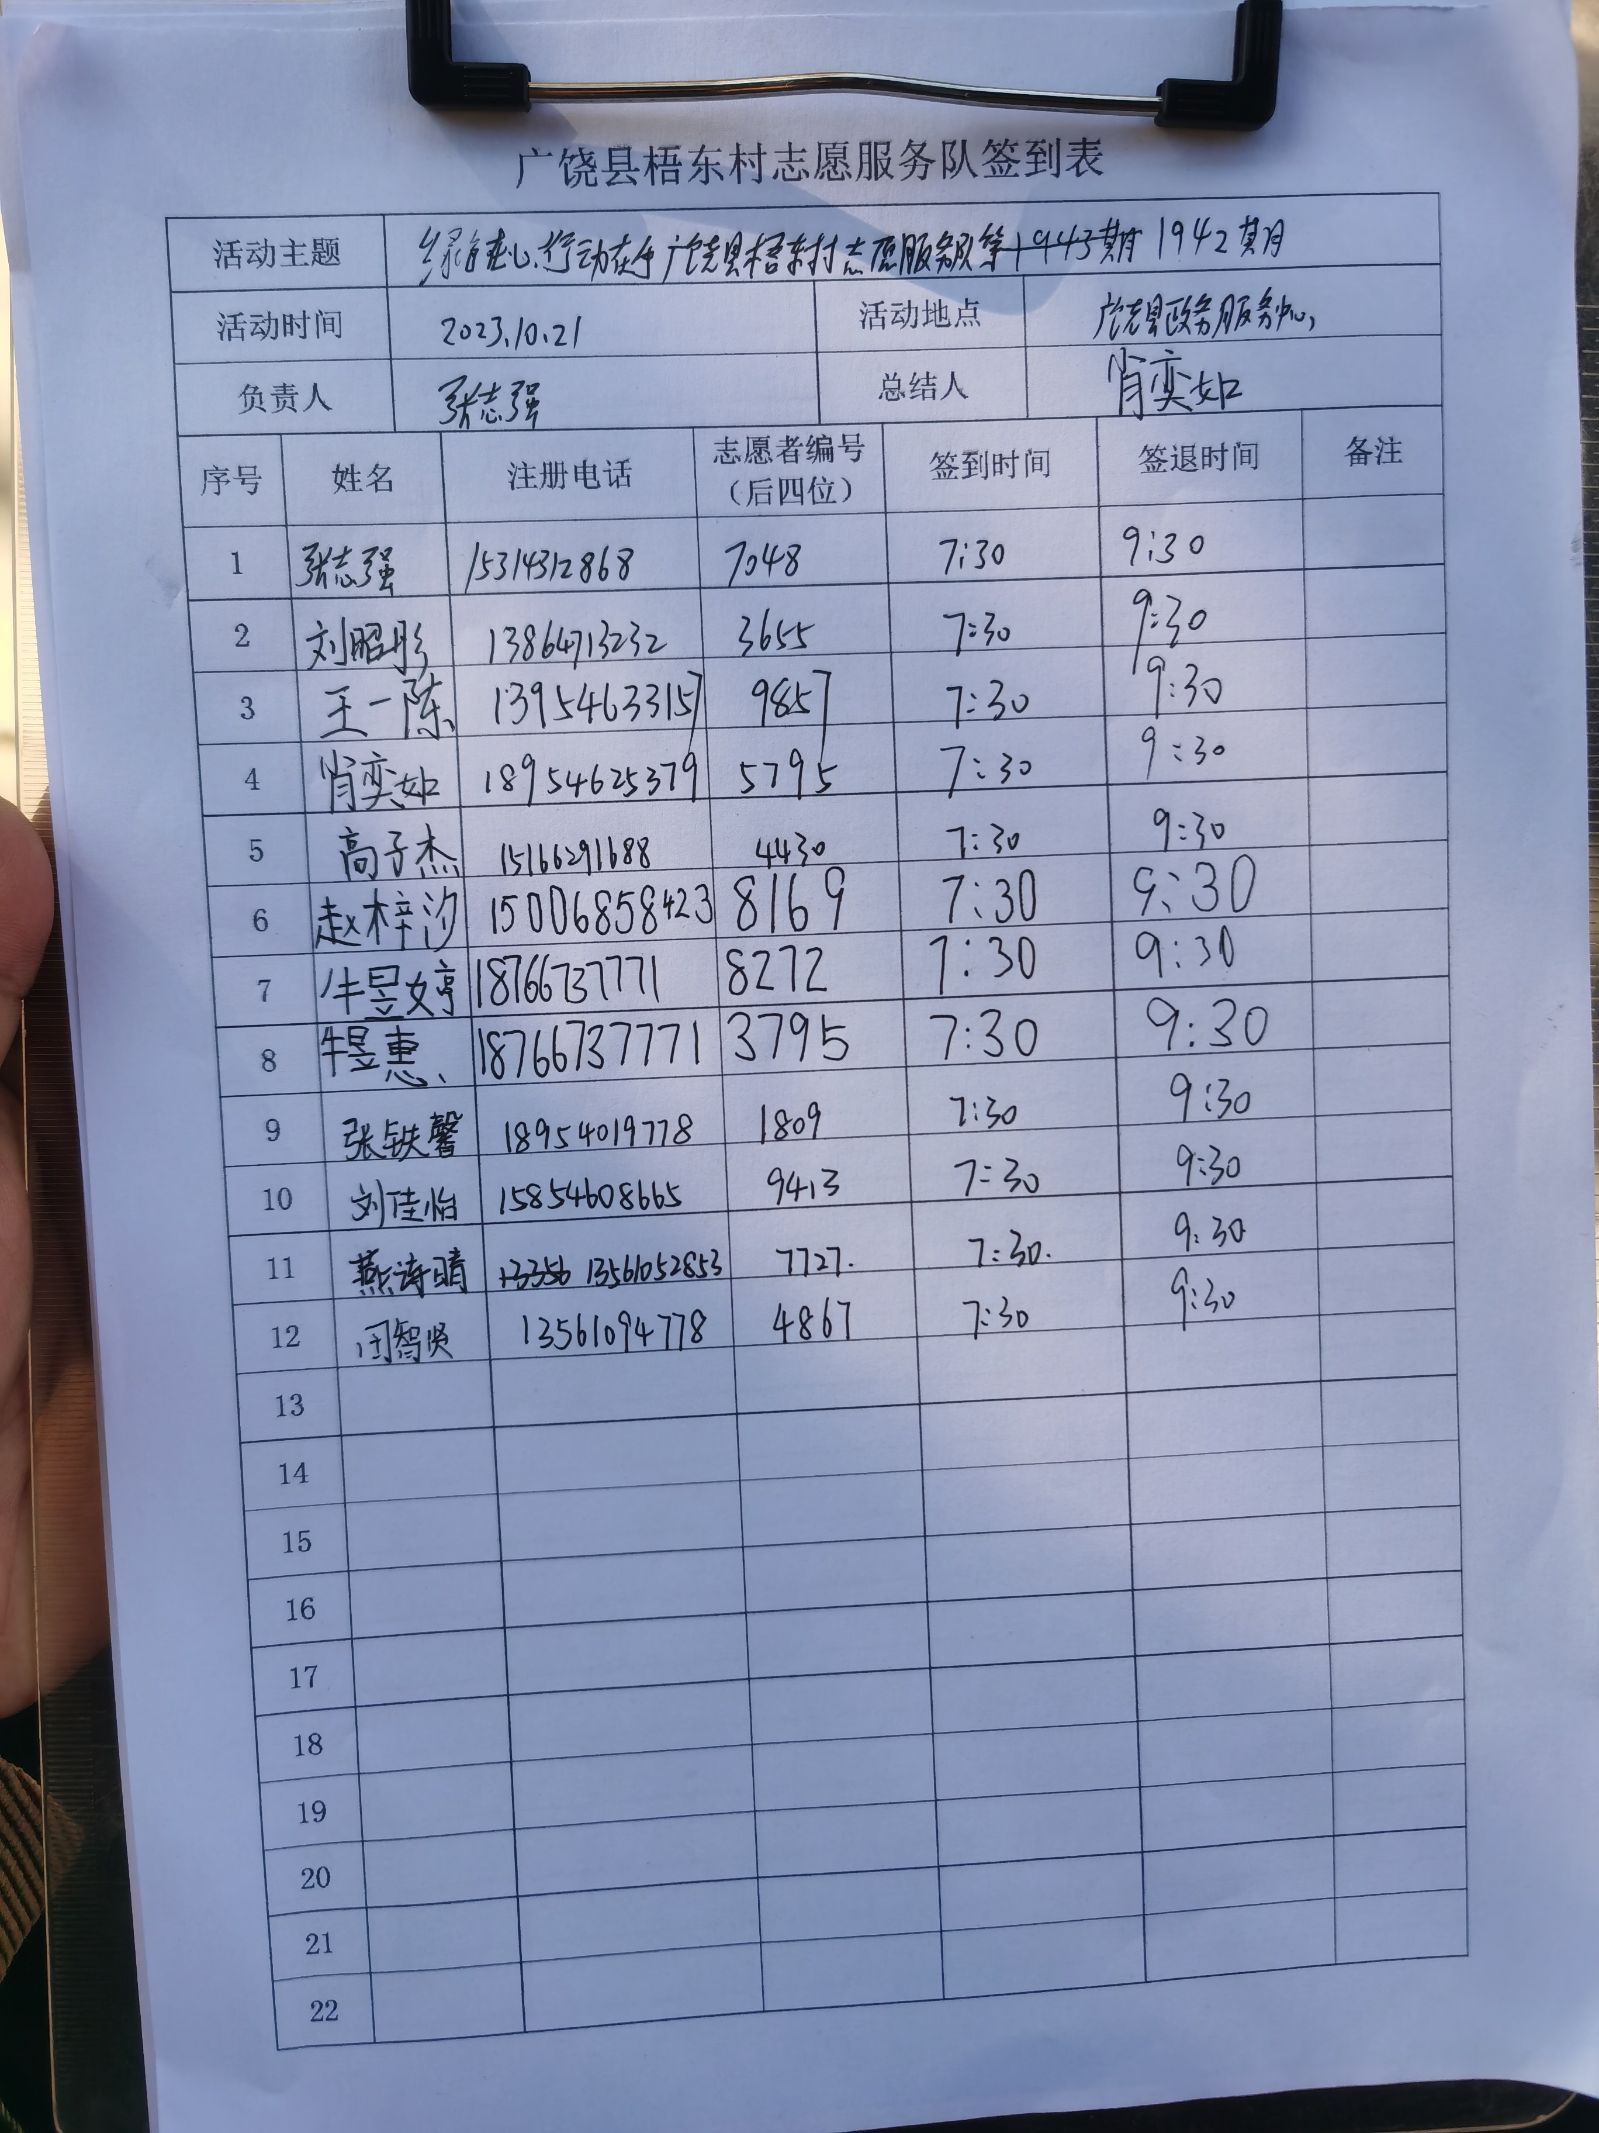 广饶县梧东村志愿服务队签到表
活动主题 绿在心,行动在手 广饶县梧东村志愿服务队第1943期 1942期
活动时间 2023.10.21 活动地点 广饶县政务服务中心
负责人 张志强 总结人 肖奕如
序号 姓名 注册电话 志愿者编号（后四位） 签到时间 签退时间 备注
1 张志强 15314312868 7048 7:30 9:30
2 刘昭彤 13864713232 3655 7:30 9:30
3 王一陈 13954633157 9857 7:30 9:30
4 肖奕如 18954625379 5795 7:30 9:30
5 高子杰 15166291688 4430 7:30 9:30
6 赵梓汐 15006858423 8169 7:30 9:30
7 牛昱婷 18766737771 8272 7:30 9:30
8 牛昱惠 18766737771 3795 7:30 9:30
9 张铁馨 18954019778 1809 7:30 9:30
10 刘佳怡 15854608665 9413 7:30 9:30
11 燕诗晴 13356 13561052853 7727. 7:30. 9:30
12 智贤 13561094778 4867 7:30 9:30
13
14
15
16
17
18
19
20
21
22